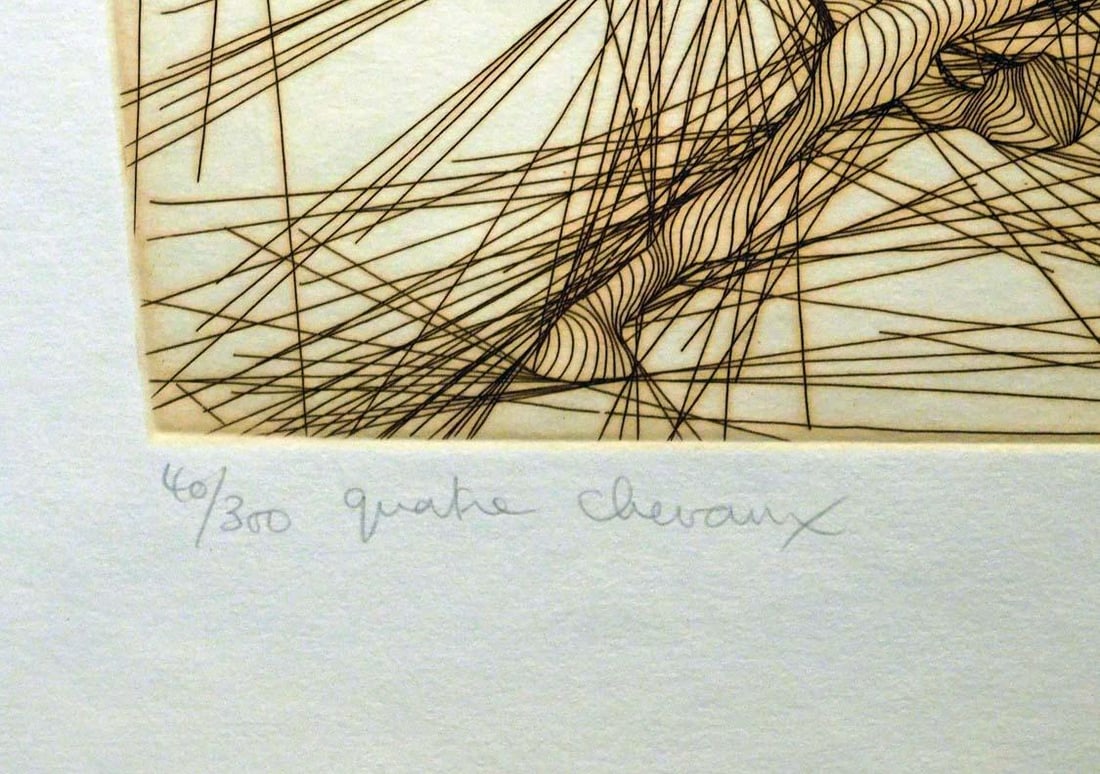 40/300 quatre chevaux